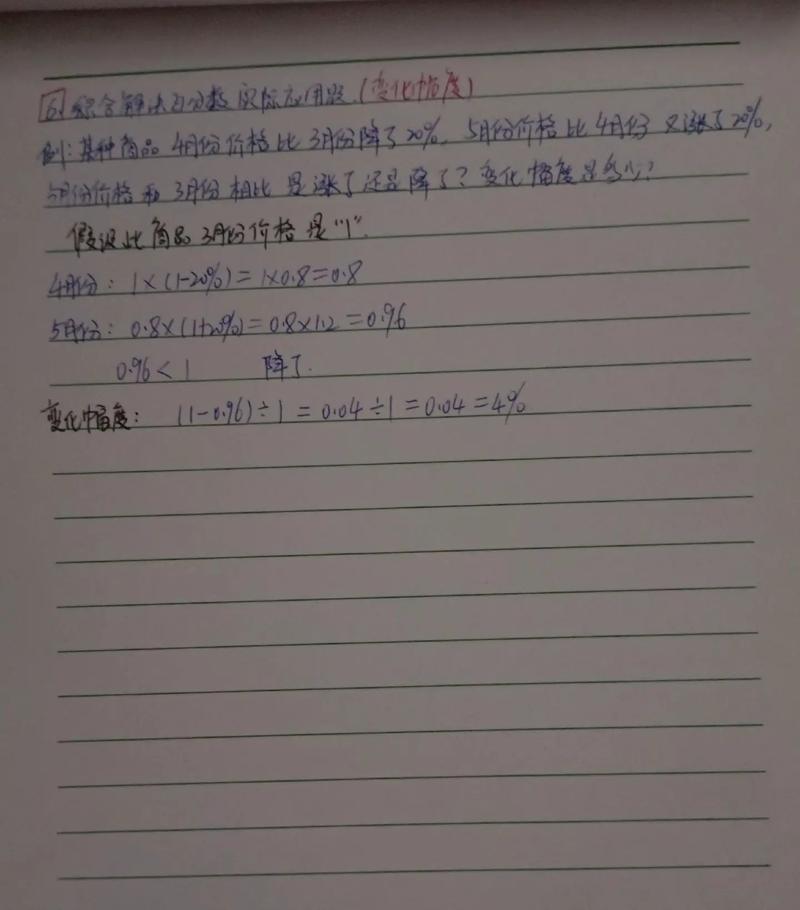 6 综合解决百分数实际应用题(变化幅度)
例:某种商品 4月份价格比 3月份降了20%, 5月份价格比4月份 又涨了20%,
5月份价格和 3月份相比 是涨了还是降了?变化幅度是多少?
假设此商品 3月份价格是"1".
4月份: 1×(1-20%)=1×0.8=0.8
5月份: 0.8×(1+20%)=0.8×1.2=0.96
0.96<1 降了.
变化幅度: (1-0.96)÷1=0.04÷1=0.04=4%